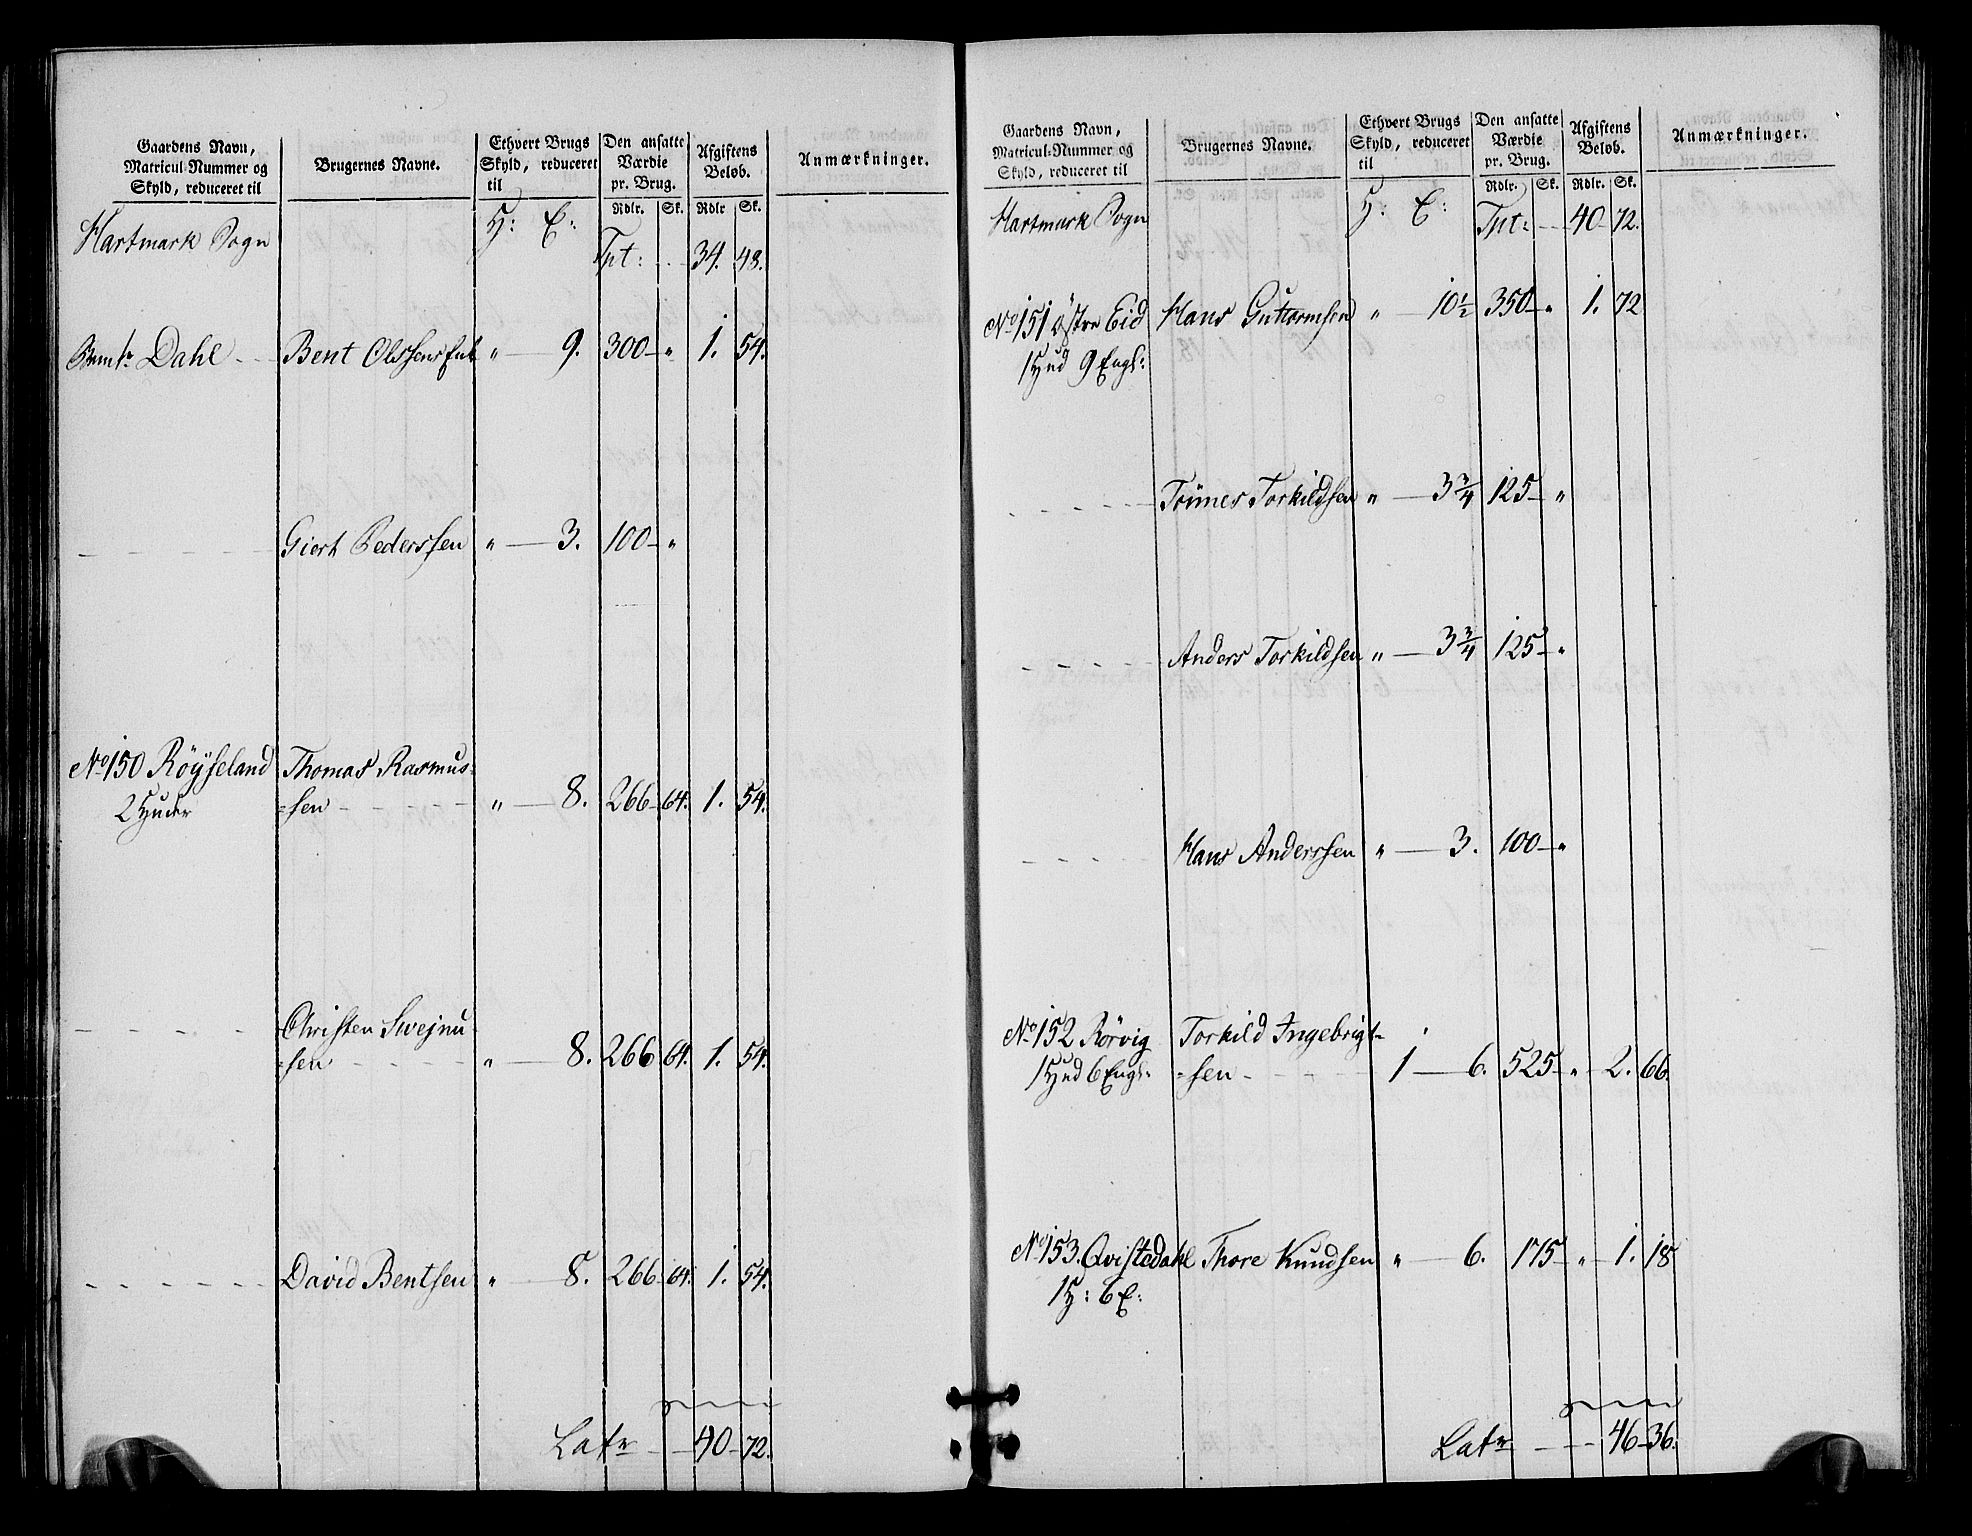 Gaardens Navn,
Matricul-Nummer og
Skyld, reduceret til
Brugernes Navne.
Ethvert Brugs
Skyld, reduceret
til
Den ansatte
Værdie
pr. Brug.
Afgiftens
Beløb.
Anmærkninger.
Rdlr. Sk. Rdlr Sk.
Hartmark Sogn H: E:
Tpt: 34. 48.
Dahl Bent Olssens Enk " 9. 300 " 1. 54.
Giert Pederssen " 3. 100 "
No 150 Röÿseland Thomas Rasmus-
2 Huder =sen " 8. 266 64. 1. 54.
Christen Swejnu
=sen " 8. 266 64. 1. 54.
David Bentsen " 8. 266 64. 1. 54.
Latr 40 72.
Gaardens Navn,
Matricul-Nummer og
Skyld, reduceret til
Brugernes Navne.
Ethvert Brugs
Skyld, reduceret
til
Den ansatte
Værdie
pr. Brug.
Afgiftens
Beløb.
Anmærkninger.
Rdlr. Sk. Rdlr. Sk.
Hartmark Sogn H: E: Tpt: 40 72.
No 151 Östre Eid Hans Guttormsen " 10½ 350 " 1. 72
1 Hud 9 Engl:
Tönnes Torkildsen " 3¾ 125 "
Anders Torkildsen " 3¾ 125 "
Hans Anderssen " 3. 100 "
No 152 Rörvig Torkild Ingebrigt-
1 Hud 6 Engl: =sen 1 6. 525 " 2. 66.
No 153. Qvistedahl Thore Knudsen " 6. 175 " 1. 18
1 H: 6 E:
Latr 46 36.